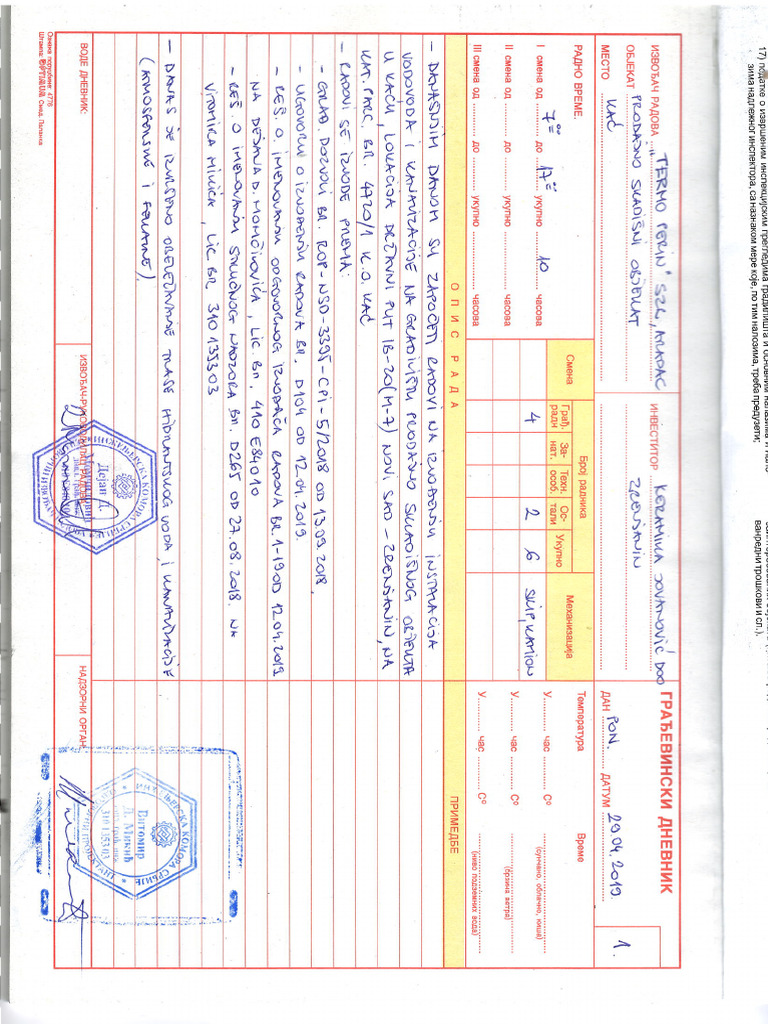 17) податке о извршеним инспекцијским прегледима градилишта и основним налазима и нало-
зима надлежног инспектора, са назнаком мере које, по тим налозима, треба предузети;
ванредни трошкови и сл.).
ГРАЂЕВИНСКИ ДНЕВНИК
ИЗВОЂАЧ РАДОВА "TERMO PERIN" SZR, ARADAC
ИНВЕСТИТОР KERAMIKA JOVANOVIĆ DOO
ОБЈЕКАТ PRODAJNO SKADIŠNI OBJEKAT
ZRENJANIN
МЕСТО KAĆ
ДАН PON. ДАТУМ 29.04.2019
1.
РАДНО ВРЕМЕ.
Смена
Број радника
Грађ. радн
За-нат.
Техн. особ.
Ос-тали
Укупно
Механизација
Температура
Време
I смена од 7⁰⁰ до 17⁰⁰ укупно 10 часова
4 2 6 SKIP, KAMION
У.......... час .......... C° (сунчано, облачно, киша)
II смена од .......... до .......... укупно .......... часова
У.......... час .......... C° (брзина ветра)
III смена од .......... до .......... укупно .......... часова
У.......... час .......... C° (ниво подземних вода)
ОПИС РАДА
ПРИМЕДБЕ
- DANAŠNJIM DANOM SU ZAPOČETI RADOVI NA IZVOĐENJU INSTALACIJA
VODOVODA I KANALIZACIJE NA GRADILIŠTU PRODAJNO SKLADIŠNOG OBJEKTA
U KAĆU, LOKACIJA DRŽAVNI PUT IB-20(M-7) NOVI SAD - ZRENJANIN, NA
KAT. PARC. BR. 4720/1 K.O. KAĆ
- RADOVI SE IZVODE PREMA:
- GRAĐ. DOZVOLI BR. ROP-NSD-3395-CPI-5/2018 OD 13.09.2018,
- UGOVORU O IZVOĐENJU RADOVA BR. D104 OD 12.04.2019.
- REŠ. O. IMENOVANJU ODGOVORNOG IZVOĐAČA RADOVA BR. 1-19 OD 12.04.2019
NA DEJANA D. MOMČILOVIĆA, LIC. BR. 410 E84010
- REŠ. O IMENOVANJU STRUČNOG NADZORA BR. D265 OD 27.08.2018. NA
VITOMIRA MIKIĆA, LIC. BR 310 1353 03
- DANAS JE IZVRŠENO OBELEŽAVANJE TRASE HIDRANTSKOG VODA, I KANALIZACIJE
(ATMOSFERSKE I FEKALNE).
ВОДЕ ДНЕВНИК:
ИЗВОЂАЧ-РУКОВОДИЛАЦ РАДОВА:
НАДЗОРНИ ОРГАН:
ИНЖЕЊЕРСКА КОМОРА СРБИЈЕ
Дејан Д.
ИНЖЕЊЕРСКА КОМОРА СРБИЈЕ
Витомир
Л. Микић
310 1353 03
Ознака поруџбине: 4776